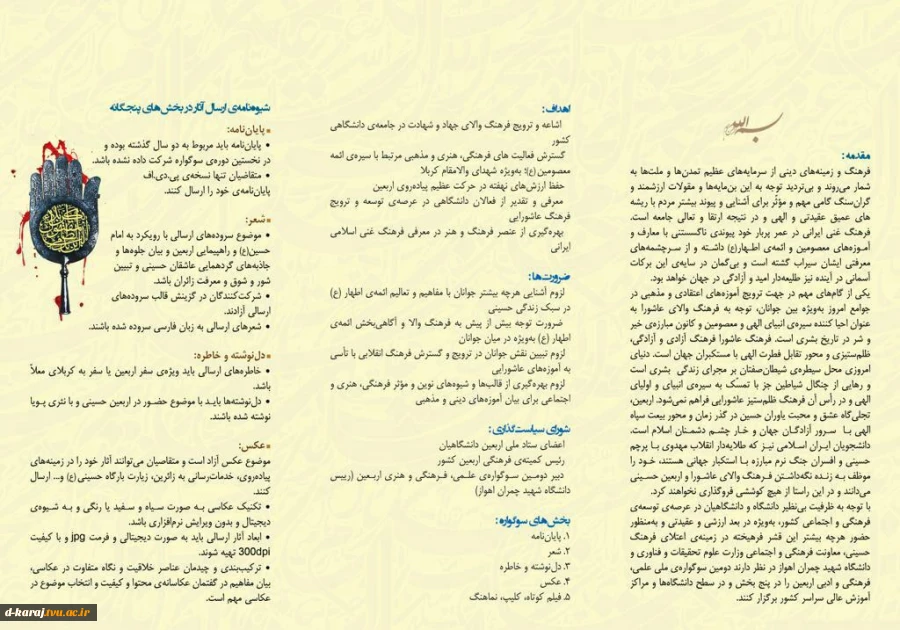 بسم الله
مقدمه:
فرهنگ و زمینه‌های دینی از سرمایه‌های عظیم تمدن‌ها و ملت‌ها به
شمار می‌روند و بی‌تردید توجه به این بن‌مایه‌ها و مقولات ارزشمند و
گران‌سنگ گامی مهم و مؤثر برای آشنایی و پیوند بیشتر مردم با ریشه
های عمیق عقیدتی و الهی و در نتیجه ارتقا و تعالی جامعه است.
فرهنگ غنی ایرانی در عمر پربار خود پیوندی ناگسستنی با معارف و
آموزه‌های معصومین و ائمه‌ی اطهار(ع) داشته و از سرچشمه‌های
معرفتی ایشان سیراب گشته است و بی‌گمان در سایه‌ی این برکات
آسمانی در آینده نیز طلیعه‌دار امید و آزادگی در جهان خواهد بود.
یکی از گام‌های مهم در جهت ترویج آموزه‌های اعتقادی و مذهبی در
جوامع امروز به‌ویژه بین جوانان، توجه به فرهنگ والای عاشورا به
عنوان احیا کننده سیره‌ی انبیای الهی و معصومین و کانون مبارزه‌ی خیر
و شر در تاریخ بشری است. فرهنگ عاشورا فرهنگ آزادی و آزادگی،
ظلم‌ستیزی و محور تقابل فطرت الهی با مستکبران جهان است. دنیای
امروزی محل سیطره‌ی شیطان‌صفتان بر مجرای زندگی بشری است
و رهایی از چنگال شیاطین جز با تمسک به سیره‌ی انبیای و اولیای
الهی و در رأس آن فرهنگ ظلم‌ستیز عاشورایی فراهم نمی‌شود. اربعین،
تجلی‌گاه عشق و محبت یاوران حسین در گذر زمان و محور بیعت سپاه
الهی با سرور آزادگان جهان و خار چشم دشمنان اسلام است.
دانشجویان ایران اسلامی نیز که طلایه‌دار انقلاب مهدوی با پرچم
حسینی و افسران جنگ نرم مبارزه با استکبار جهانی هستند، خود را
موظف به زنده نگه‌داشتن فرهنگ والای عاشورا و اربعین حسینی
می‌دانند و در این راستا از هیچ کوششی فروگذاری نخواهند کرد.
با توجه به ظرفیت بی‌نظیر دانشگاه و دانشگاهیان در عرصه‌ی توسعه‌ی
فرهنگی و اجتماعی کشور، به‌ویژه در بعد ارزشی و عقیدتی و به‌منظور
حضور هرچه بیشتر این قشر فرهیخته در زمینه‌ی اعتلای فرهنگ
حسینی، معاونت فرهنگی و اجتماعی وزارت علوم تحقیقات و فناوری و
دانشگاه شهید چمران اهواز در نظر دارند دومین سوگواره‌ی ملی علمی،
فرهنگی و ادبی اربعین را در پنج بخش و در سطح دانشگاه‌ها و مراکز
آموزش عالی سراسر کشور برگزار کنند.
اهداف:
اشاعه و ترویج فرهنگ والای جهاد و شهادت در جامعه‌ی دانشگاهی
کشور
گسترش فعالیت های فرهنگی، هنری و مذهبی مرتبط با سیره‌ی ائمه
معصومین(ع)؛ به‌ویژه شهدای والامقام کربلا
حفظ ارزش‌های نهفته در حرکت عظیم پیاده‌روی اربعین
معرفی و تقدیر از فعالان دانشگاهی در عرصه‌ی توسعه و ترویج
فرهنگ عاشورایی
بهره‌گیری از عنصر فرهنگ و هنر در معرفی فرهنگ غنی اسلامی
ایرانی
ضرورت‌ها:
لزوم آشنایی هرچه بیشتر جوانان با مفاهیم و تعالیم ائمه‌ی اطهار (ع)
در سبک زندگی حسینی
ضرورت توجه بیش از پیش به فرهنگ والا و آگاهی‌بخش ائمه‌ی
اطهار (ع) به‌ویژه در میان جوانان
لزوم تبیین نقش جوانان در ترویج و گسترش فرهنگ انقلابی با تأسی
به آموزه‌های عاشورایی
لزوم بهره‌گیری از قالب‌ها و شیوه‌های نوین و مؤثر فرهنگی، هنری و
اجتماعی برای بیان آموزه‌های دینی و مذهبی
شورای سیاست‌گذاری:
اعضای ستاد ملی اربعین دانشگاهیان
رئیس کمیته‌ی فرهنگی اربعین کشور
دبیر دومین سوگواره‌ی علمی، فرهنگی و هنری اربعین (رییس
دانشگاه شهید چمران اهواز)
بخش‌های سوگواره:
۱. پایان‌نامه
۲. شعر
۳. دل‌نوشته و خاطره
۴. عکس
۵. فیلم کوتاه، کلیپ، نماهنگ
شیوه‌نامه‌ی ارسال آثار در بخش‌های پنجگانه
▪ پایان‌نامه:
• پایان‌نامه باید مربوط به دو سال گذشته بوده و
در نخستین دوره‌ی سوگواره شرکت داده نشده باشد.
• متقاضیان تنها نسخه‌ی پی.دی.اف
پایان‌نامه‌ی خود را ارسال کنند.
▪ شعر:
• موضوع سروده‌های ارسالی با رویکرد به امام
حسین(ع) و راهپیمایی اربعین و بیان جلوه‌ها و
جاذبه‌های گردهمایی عاشقان حسینی و تبیین
شور و شوق و معرفت زائران باشد.
• شرکت‌کنندگان در گزینش قالب سروده‌های
ارسالی آزادند.
• شعرهای ارسالی به زبان فارسی سروده شده باشند.
▪ دل‌نوشته و خاطره:
• خاطره‌های ارسالی باید ویژه‌ی سفر اربعین یا سفر به کربلای معلاّ
باشد.
• دل‌نوشته‌ها باید با موضوع حضور در اربعین حسینی و با نثری پویا
نوشته شده باشند.
▪ عکس:
موضوع عکس آزاد است و متقاضیان می‌توانند آثار خود را در زمینه‌های
پیاده‌روی، خدمات‌رسانی به زائرین، زیارت بارگاه حسینی (ع) و... ارسال
کنند.
• تکنیک عکاسی به صورت سیاه و سفید یا رنگی و به شیوه‌ی
دیجیتال و بدون ویرایش نرم‌افزاری باشد.
• ابعاد آثار ارسالی باید به صورت دیجیتالی و فرمت jpg و با کیفیت
300dpi تهیه شوند.
• ترکیب‌بندی و چیدمان عناصر خلاقیت و نگاه متفاوت در عکاسی،
بیان مفاهیم در گفتمان عکاسانه‌ی محتوا و کیفیت و انتخاب موضوع در
عکاسی مهم است.
d-karaj.tvu.ac.ir